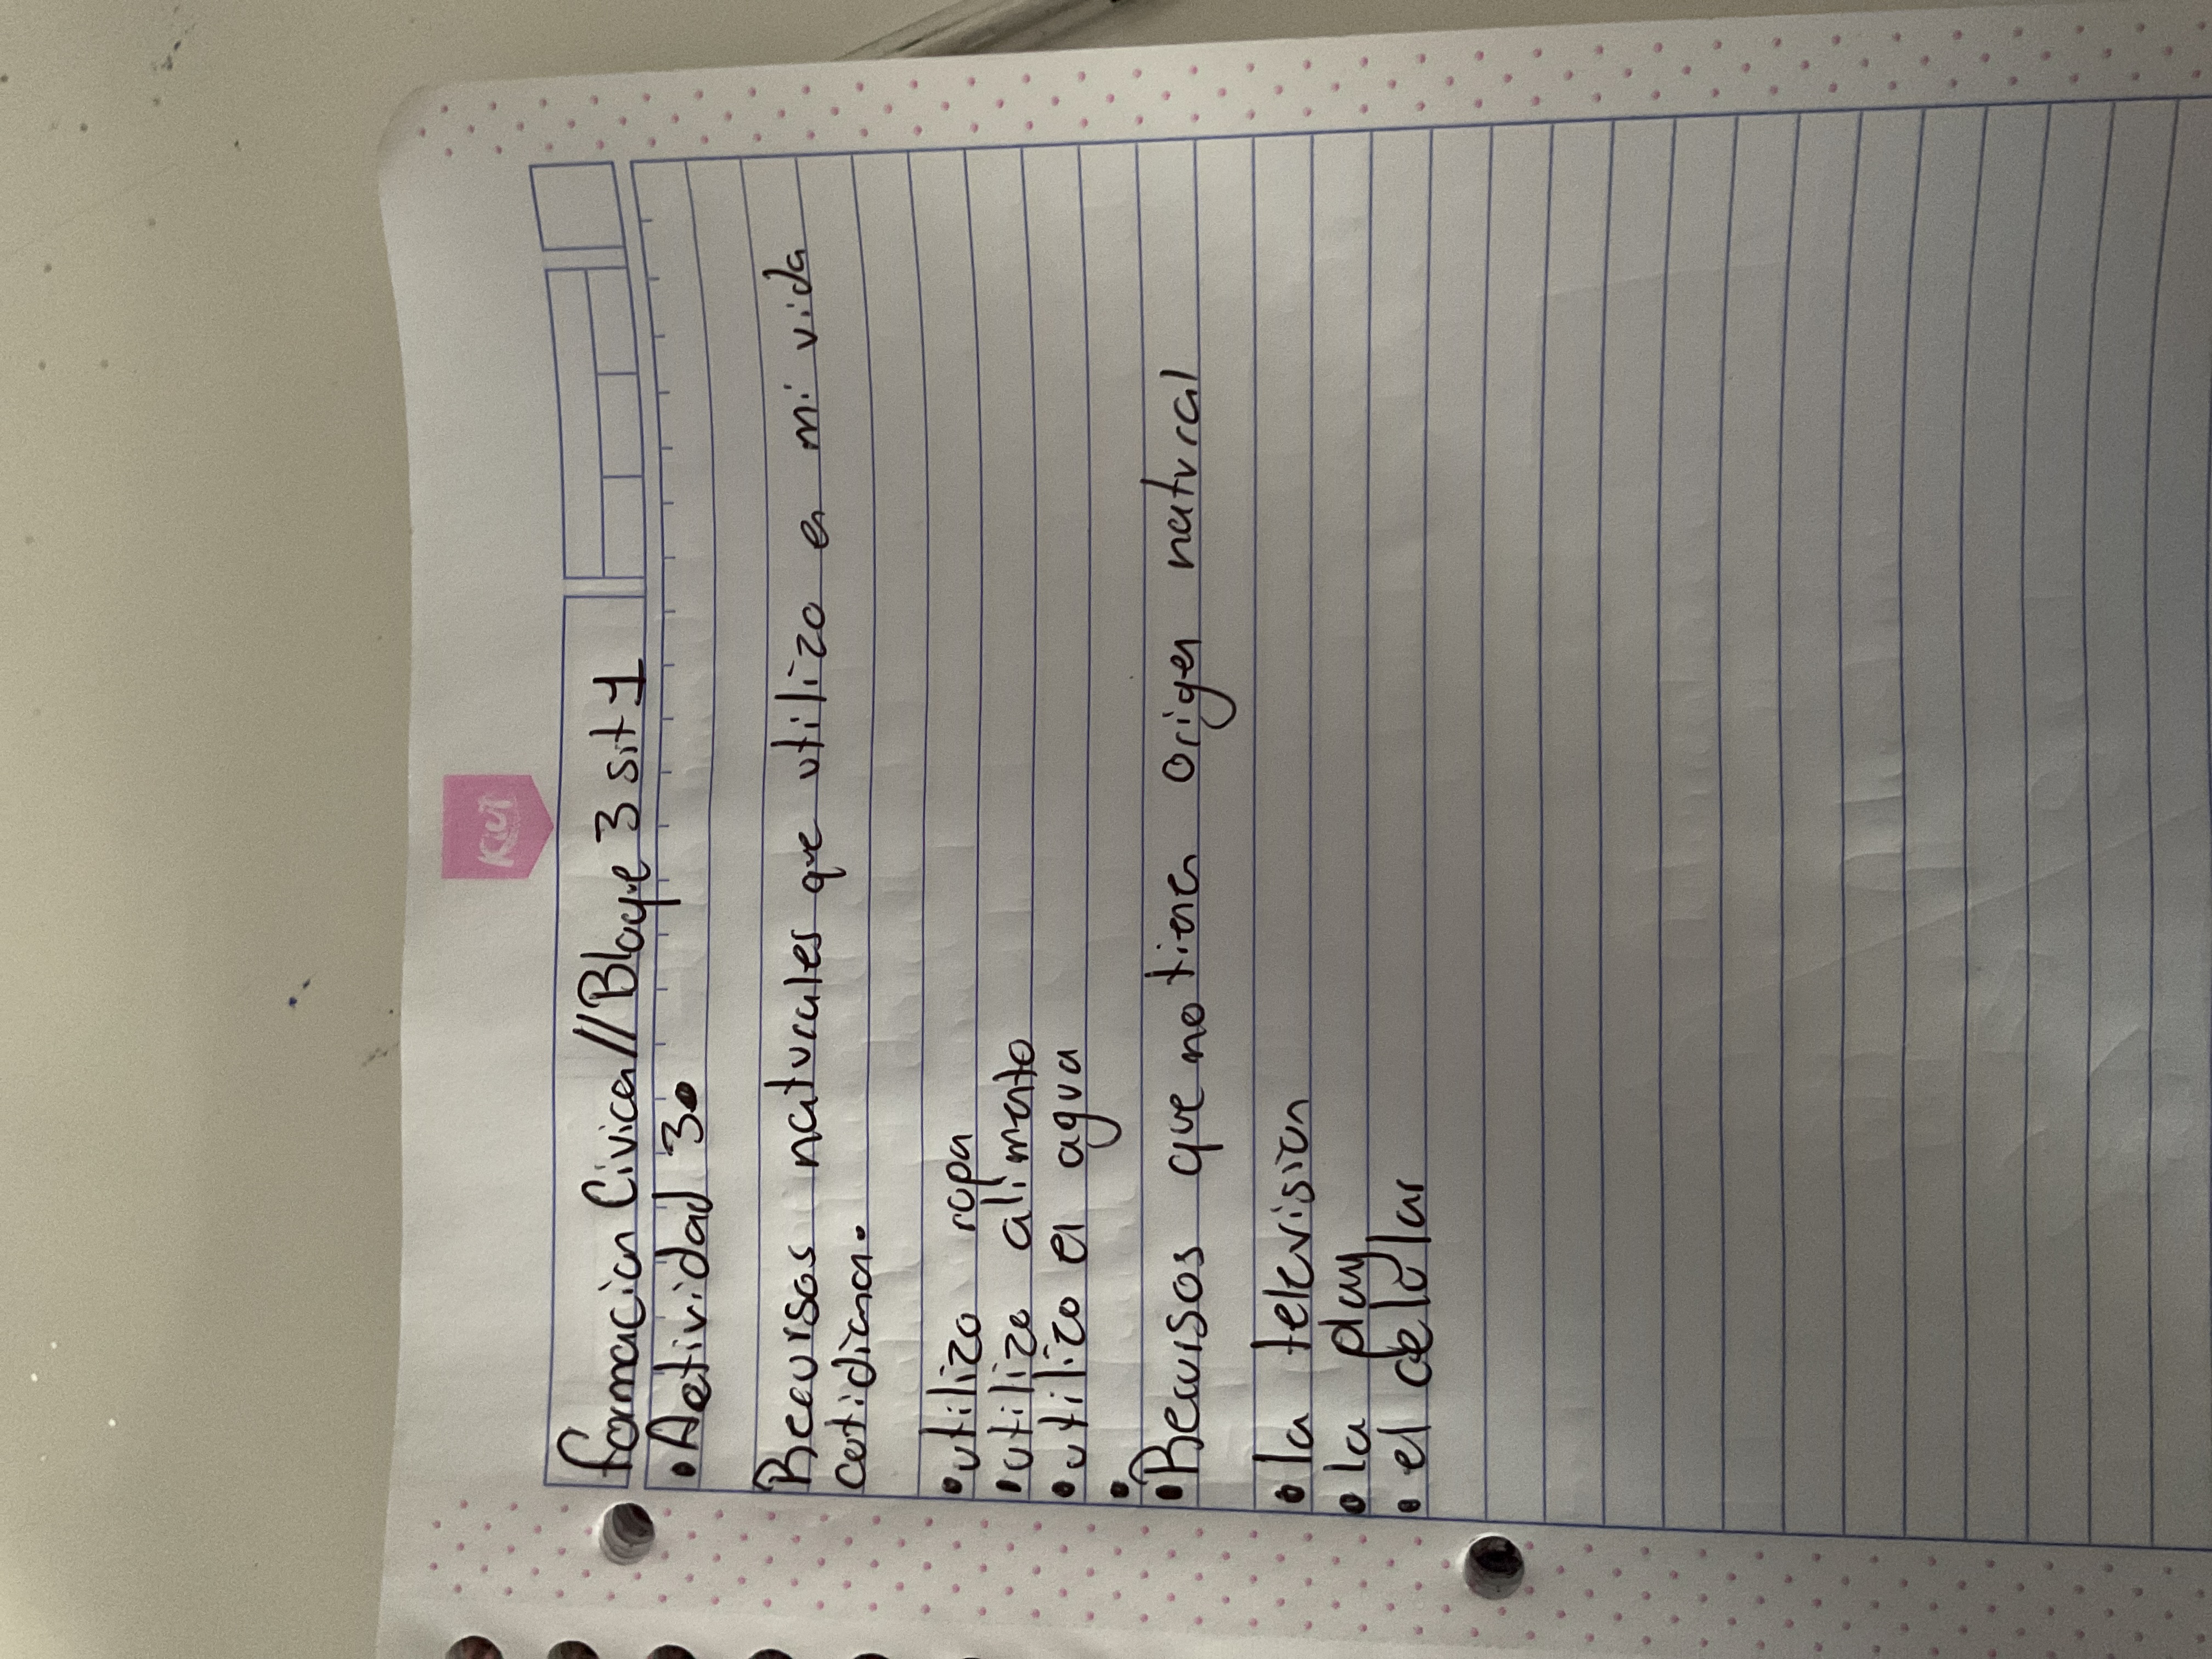 Kiut
formacion Civica//Bloque 3 sit 1
• Actividad 3.
Recursos naturales que utilizo en mi vida
cotidiana.
• utilizo ropa
• utilizo alimento
• utilizo el agua
•
• Recursos que no tienen origen natural
• la television
• la play
• el celular